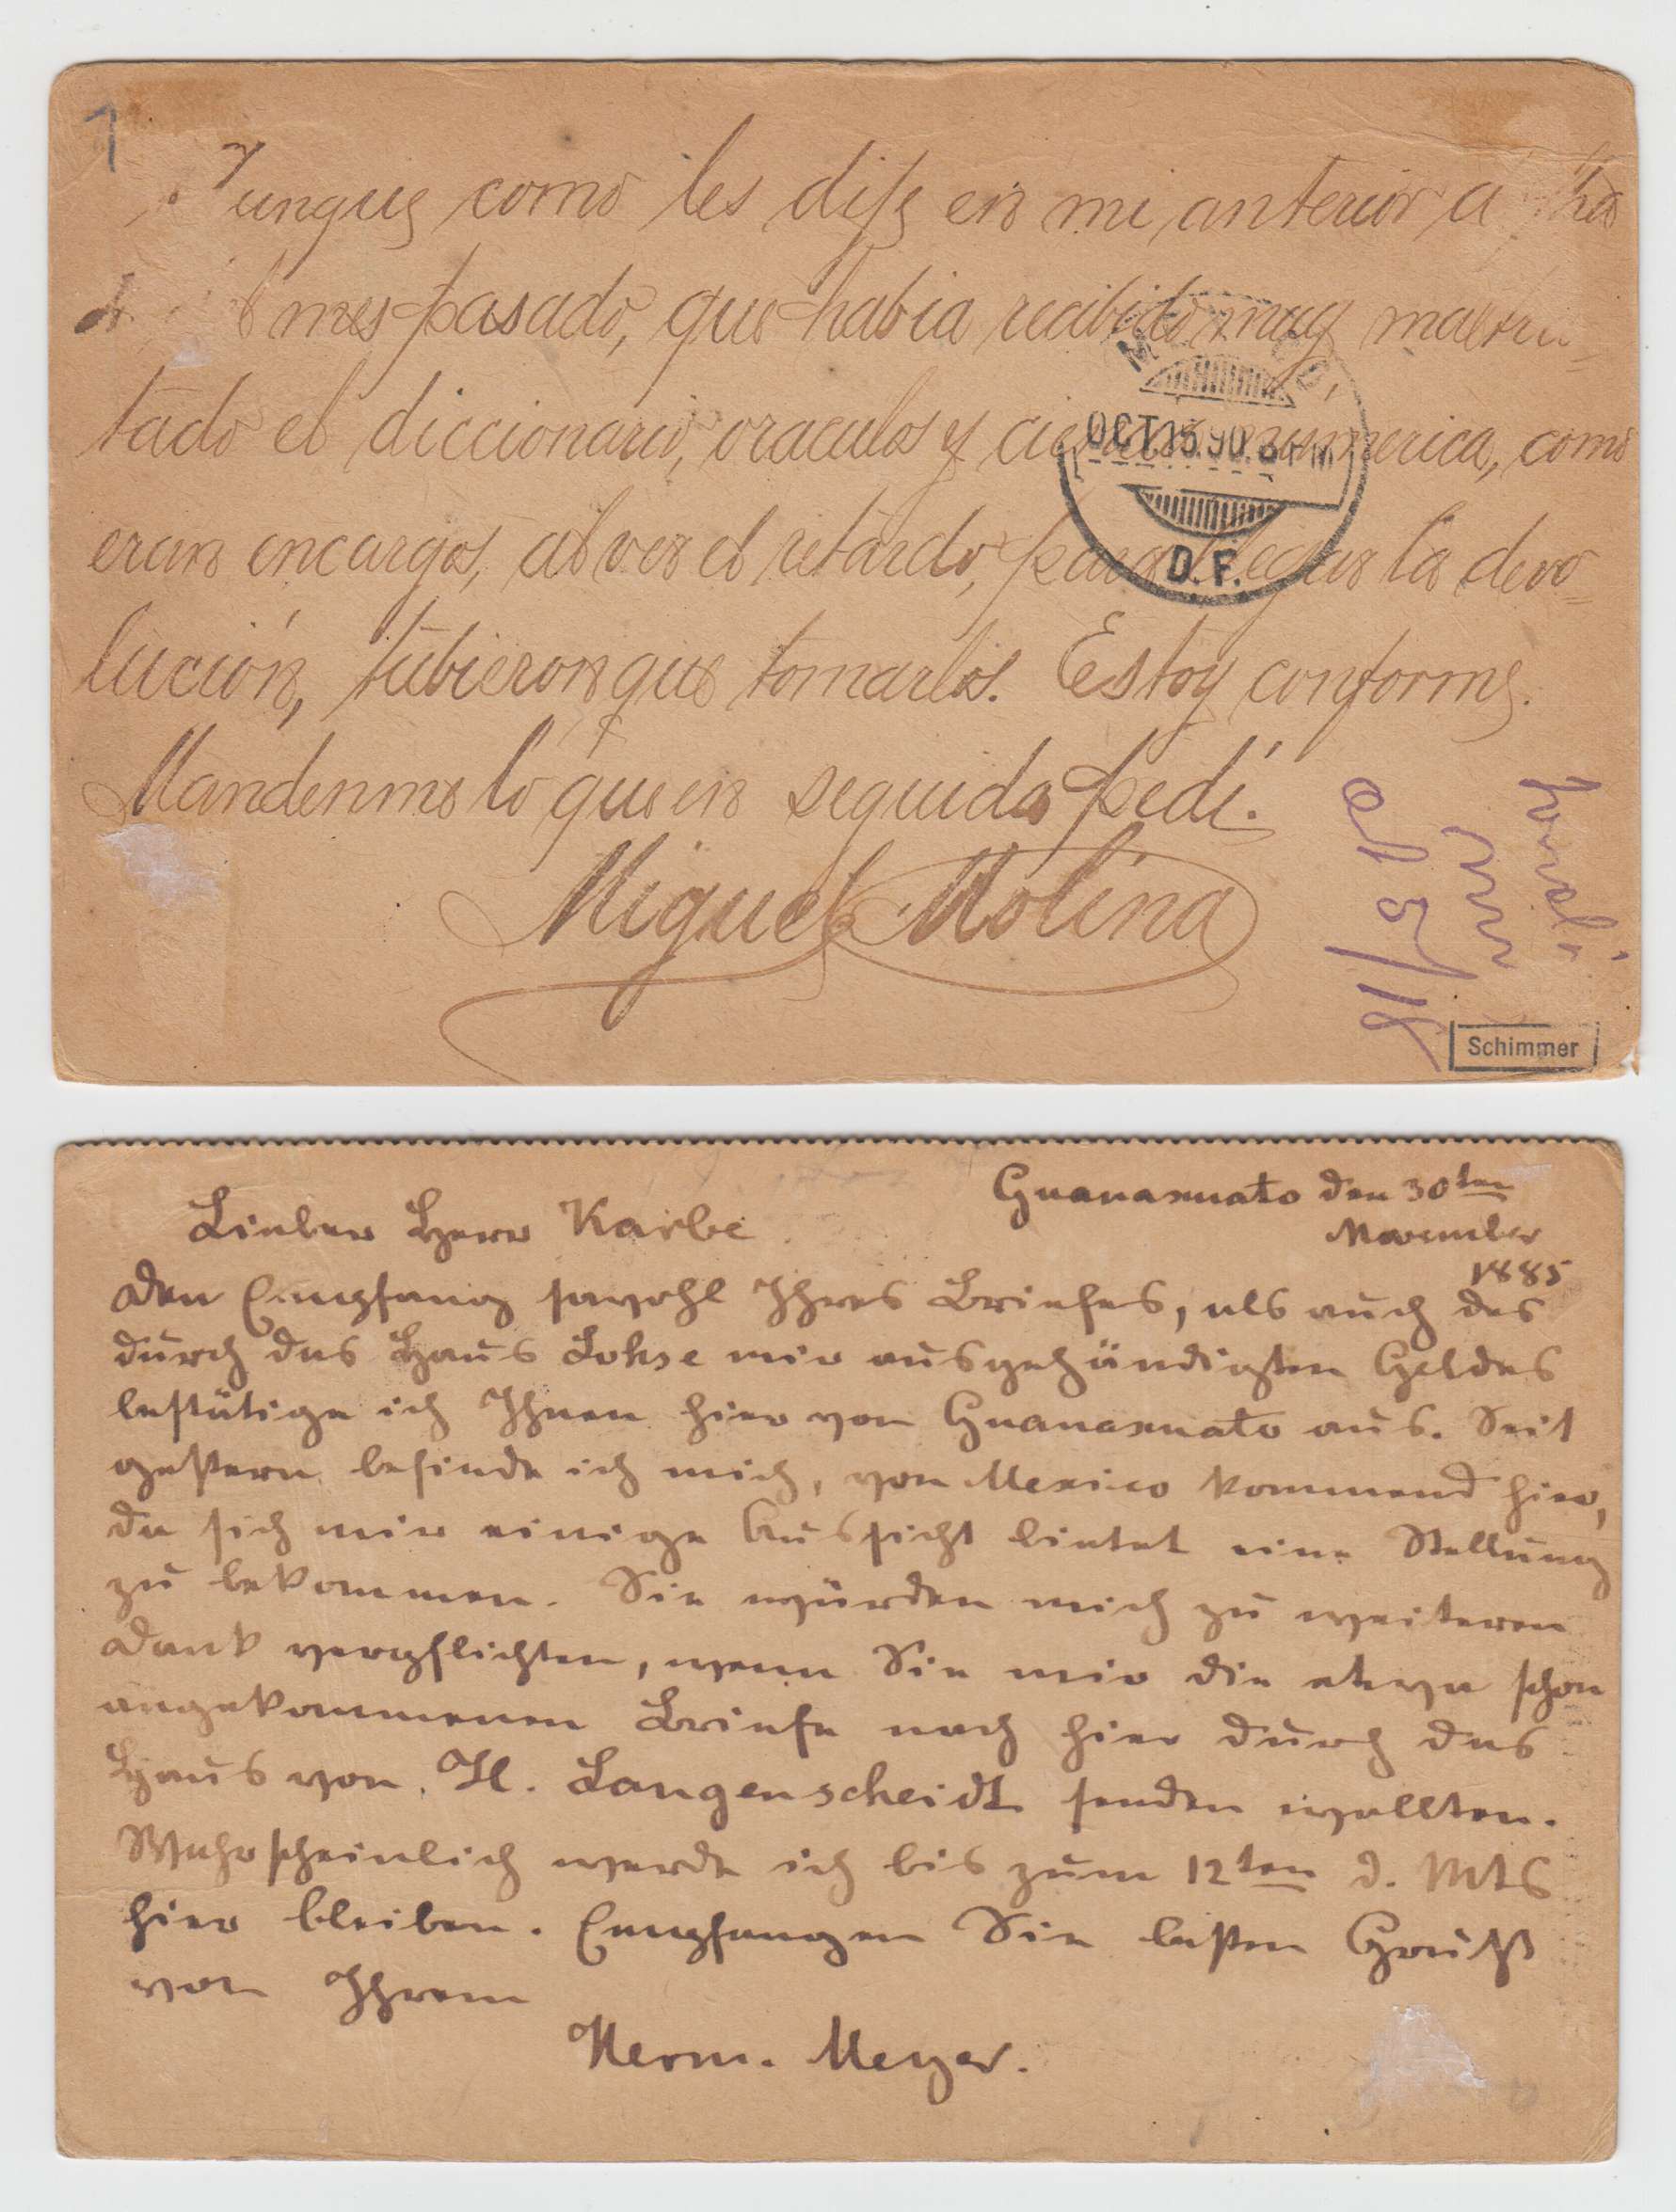 1
Aunque como les dije en mi anterior a
mes pasado, que habia recibido muy maltra-
tado el diccionario, oraculos y numerica, como
eran encargos, al ver el retardo, para llegar la devo-
lución, tubieron que tomarlos. Estoy conforme.
Mandenme lo que en seguida pedi.
Miguel Molina
MEXICO
OCT.15.90.8PM
D.F.
Schimmer
Guanaxuato den 30ten
Lieber Herr Karbe
November
1885
Den Empfang sowohl Ihres Briefes, als auch des
durch das Haus Lohse mir ausgehändigten Geldes
bestätige ich Ihnen hier von Guanaxuato aus. Seit
gestern befinde ich mich, von Mexico kommend hier,
da sich mir einige Aussicht bietet eine Stellung
zu bekommen. Sie würden mich zu weiteren
Dank verpflichten, wenn Sie mir die etwa schon
angekommenen Briefe nach hier durch das
Haus von H. Langenscheidt senden wollten.
Wahrscheinlich werde ich bis zum 12ten d. Mts
hier bleiben. Empfangen Sie besten Gruß
von Ihrem
Herm. Meyer.